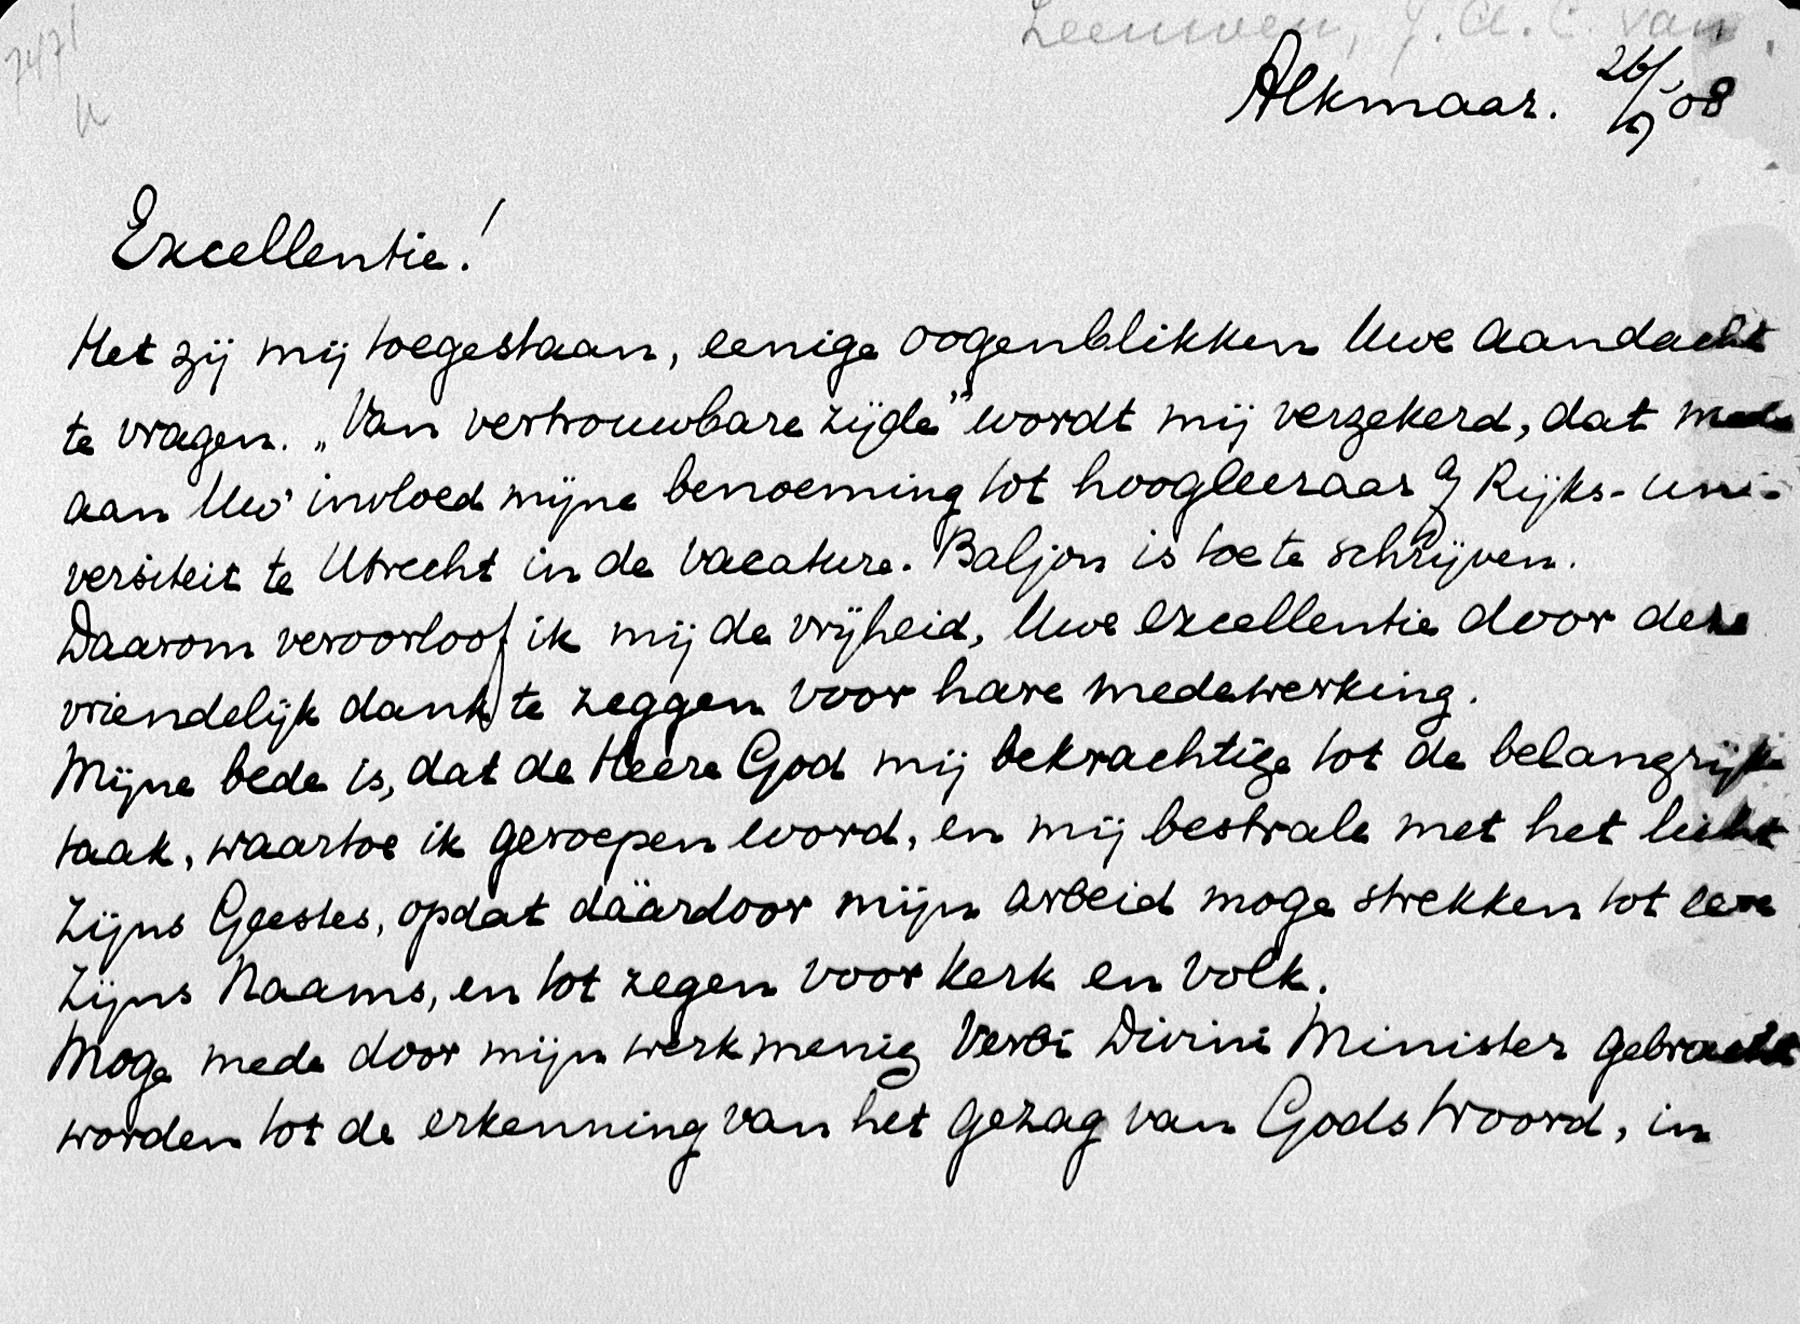 Leeuwen, J. A. C. van.
7471
Alkmaar. 26/9 08
Excellentie!
Het zij mij toegestaan, eenige oogenblikken Uwe aandacht
te vragen. „Van vertrouwbare zijde" wordt mij verzekerd, dat mede
aan Uw invloed mijne benoeming tot hoogleeraar Rijks-uni-
versiteit te Utrecht in de vacature. Baljon is toe te schrijven.
Daarom veroorloof ik mij de vrijheid, Uwe excellentie door deze
vriendelijk dank te zeggen voor hare medewerking.
Mijne bede is, dat de Heere God mij bekrachtige tot de belangrijke
taak, waartoe ik geroepen word, en mij bestrale met het licht
Zijns Geestes, opdat däärdoor mijn arbeid moge strekken tot eere
Zijns Naams, en tot zegen voor kerk en volk.
Moge mede door mijn werk menig Verbi Divini Minister gebracht
worden tot de erkenning van het gezag van Gods Woord, in